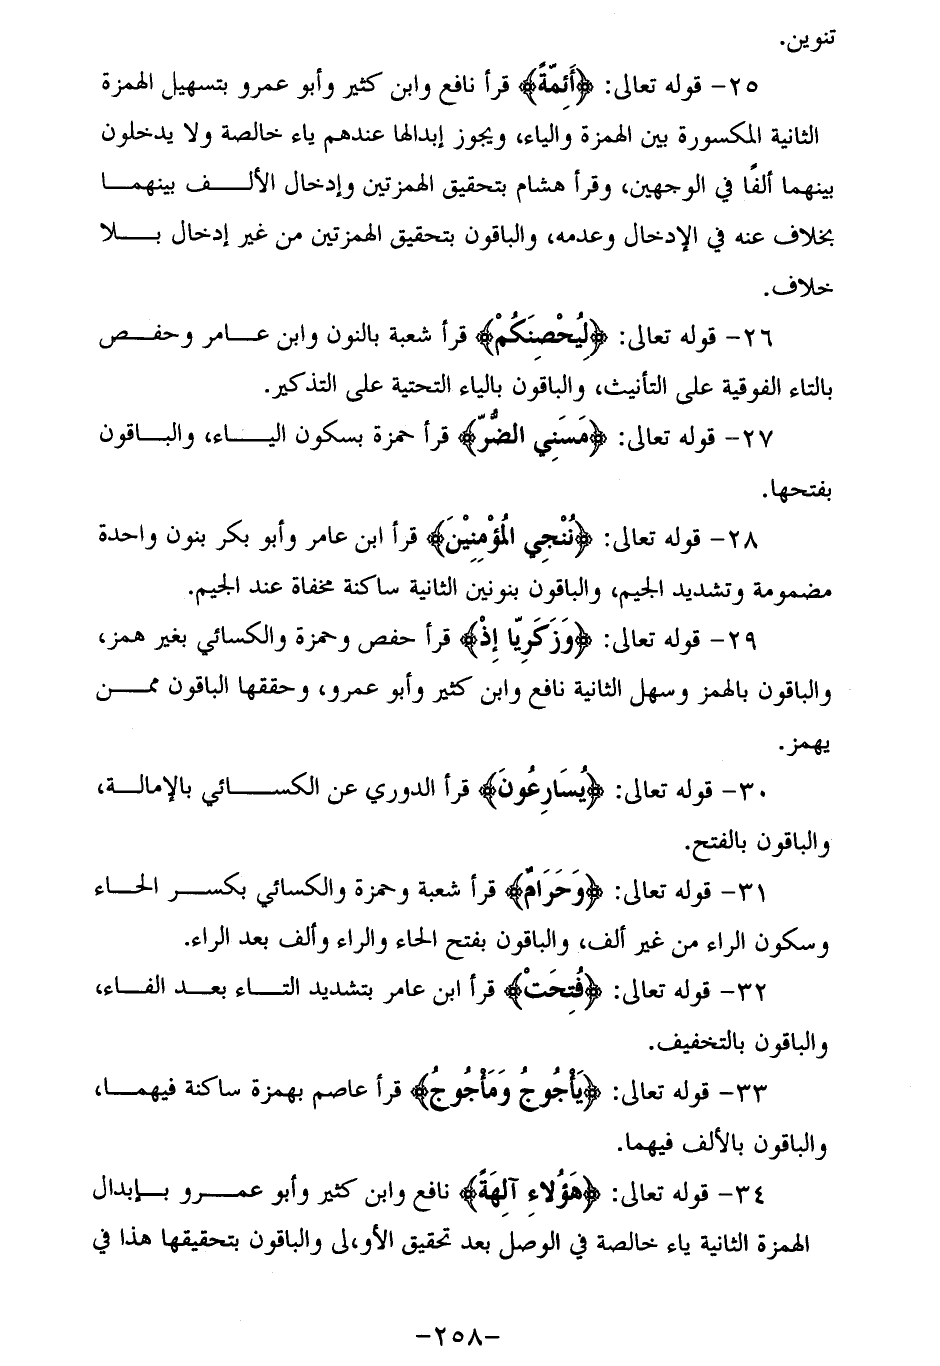 تنوين.
٢٥- قوله تعالى: ﴿أَئِمَّةً﴾ قرأ نافع وابن كثير وأبو عمرو بتسهيل الهمزة
الثانية المكسورة بين الهمزة والياء، ويجوز إبدالها عندهم ياء خالصة ولا يدخلون
بينهما ألفًا في الوجهين، وقرأ هشام بتحقيق الهمزتين وإدخال الألف بينهما
بخلاف عنه في الإدخال وعدمه، والباقون بتحقيق الهمزتين من غير إدخال بلا
خلاف.
٢٦- قوله تعالى: ﴿لِيُحْصِنَكُمْ﴾ قرأ شعبة بالنون وابن عامر وحفص
بالتاء الفوقية على التأنيث، والباقون بالياء التحتية على التذكير.
٢٧- قوله تعالى: ﴿مَسَنِي الضُّرّ﴾ قرأ حمزة بسكون الياء، والباقون
بفتحها.
٢٨- قوله تعالى: ﴿نُنْجِي الْمُؤْمِنِيْنَ﴾ قرأ ابن عامر وأبو بكر بنون واحدة
مضمومة وتشديد الجيم، والباقون بنونين الثانية ساكنة مخفاة عند الجيم.
٢٩- قوله تعالى: ﴿وَزَكَرِيّا إِذْ﴾ قرأ حفص وحمزة والكسائي بغير همز،
والباقون بالهمز وسهل الثانية نافع وابن كثير وأبو عمرو، وحققها الباقون ممن
يهمز.
٣٠- قوله تعالى: ﴿يُسَارِعُونَ﴾ قرأ الدوري عن الكسائي بالإمالة،
والباقون بالفتح.
٣١- قوله تعالى: ﴿وَحَرَامٌ﴾ قرأ شعبة وحمزة والكسائي بكسر الحاء
وسكون الراء من غير ألف، والباقون بفتح الحاء والراء وألف بعد الراء.
٣٢- قوله تعالى: ﴿فُتِحَتْ﴾ قرأ ابن عامر بتشديد التاء بعد الفاء،
والباقون بالتخفيف.
٣٣- قوله تعالى: ﴿يَأْجُوجُ وَمَأْجُوجُ﴾ قرأ عاصم بهمزة ساكنة فيهما،
والباقون بالألف فيهما.
٣٤- قوله تعالى: ﴿هَؤُلاءِ آلِهَةً﴾ نافع وابن كثير وأبو عمرو بإبدال
الهمزة الثانية ياء خالصة في الوصل بعد تحقيق الأو،لى والباقون بتحقيقها هذا في
-٢٥٨-